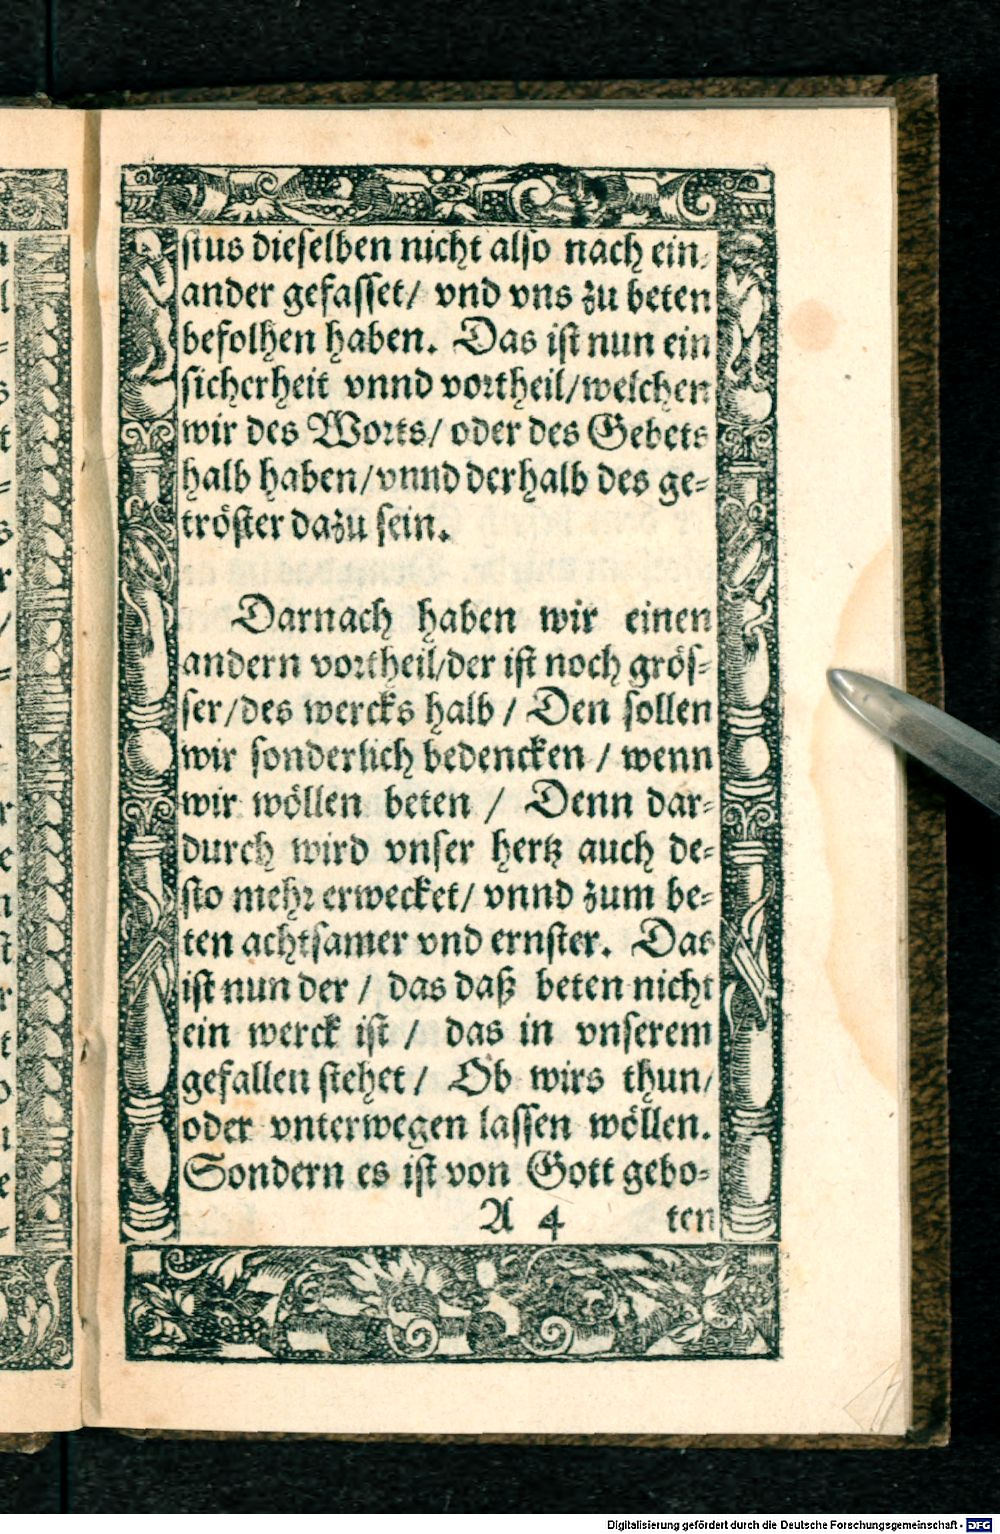 stus dieselben nicht also nach ein-
ander gefasset/ vnd vns zu beten
befolhen haben. Das ist nun ein
sicherheit vnnd vortheil/welchen
wir des Worts/ oder des Gebets
halb haben/vnnd derhalb des ge-
tröster dazu sein.
Darnach haben wir einen
andern vortheil/der ist noch grös-
ser/des wercks halb / Den sollen
wir sonderlich bedencken / wenn
wir wöllen beten / Denn dar-
durch wird vnser hertz auch de-
sto mehr erwecket/ vnnd zum be-
ten achtsamer vnd ernster. Das
ist nun der / das daß beten nicht
ein werck ist / das in vnserem
gefallen stehet / Ob wirs thun/
oder vnterwegen lassen wöllen.
Sondern es ist von Gott gebo-
A 4 ten
Digitalisierung gefördert durch die Deutsche Forschungsgemeinschaft - DFG